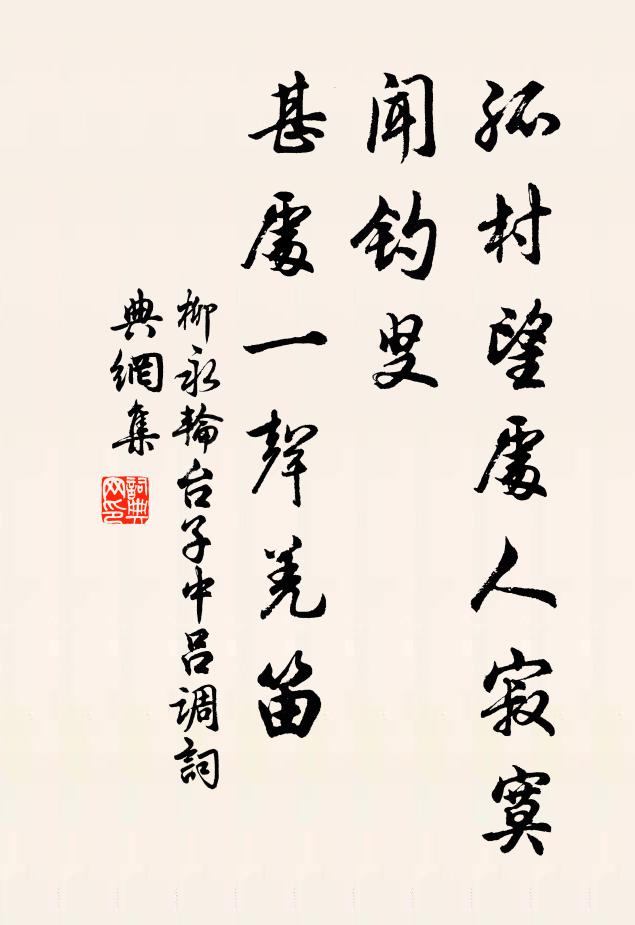 孤村望處人寂寞
聞釣叟
甚處一聲羌笛
柳永輪台子中吕調詞
典網集
詞典網印